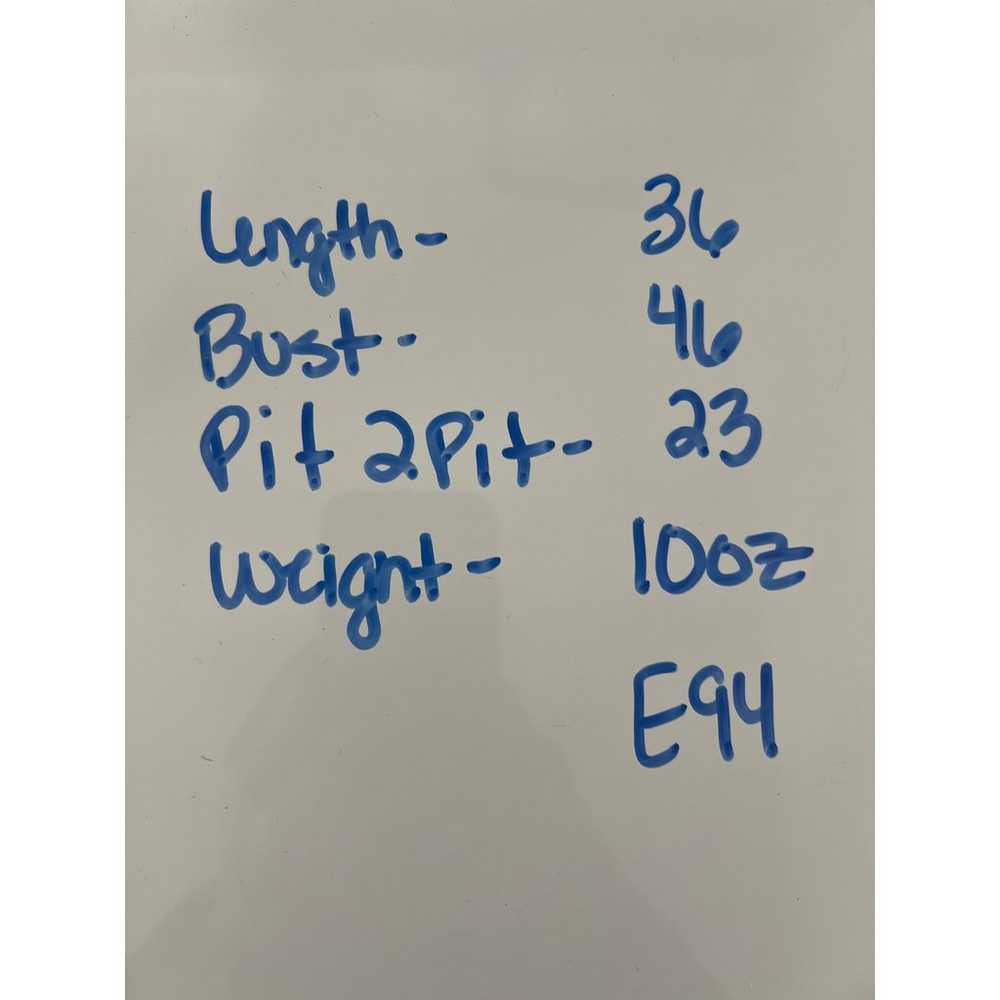 Length- 36
Bust- 46
Pit 2 Pit- 23
Weight- 10oz
E94